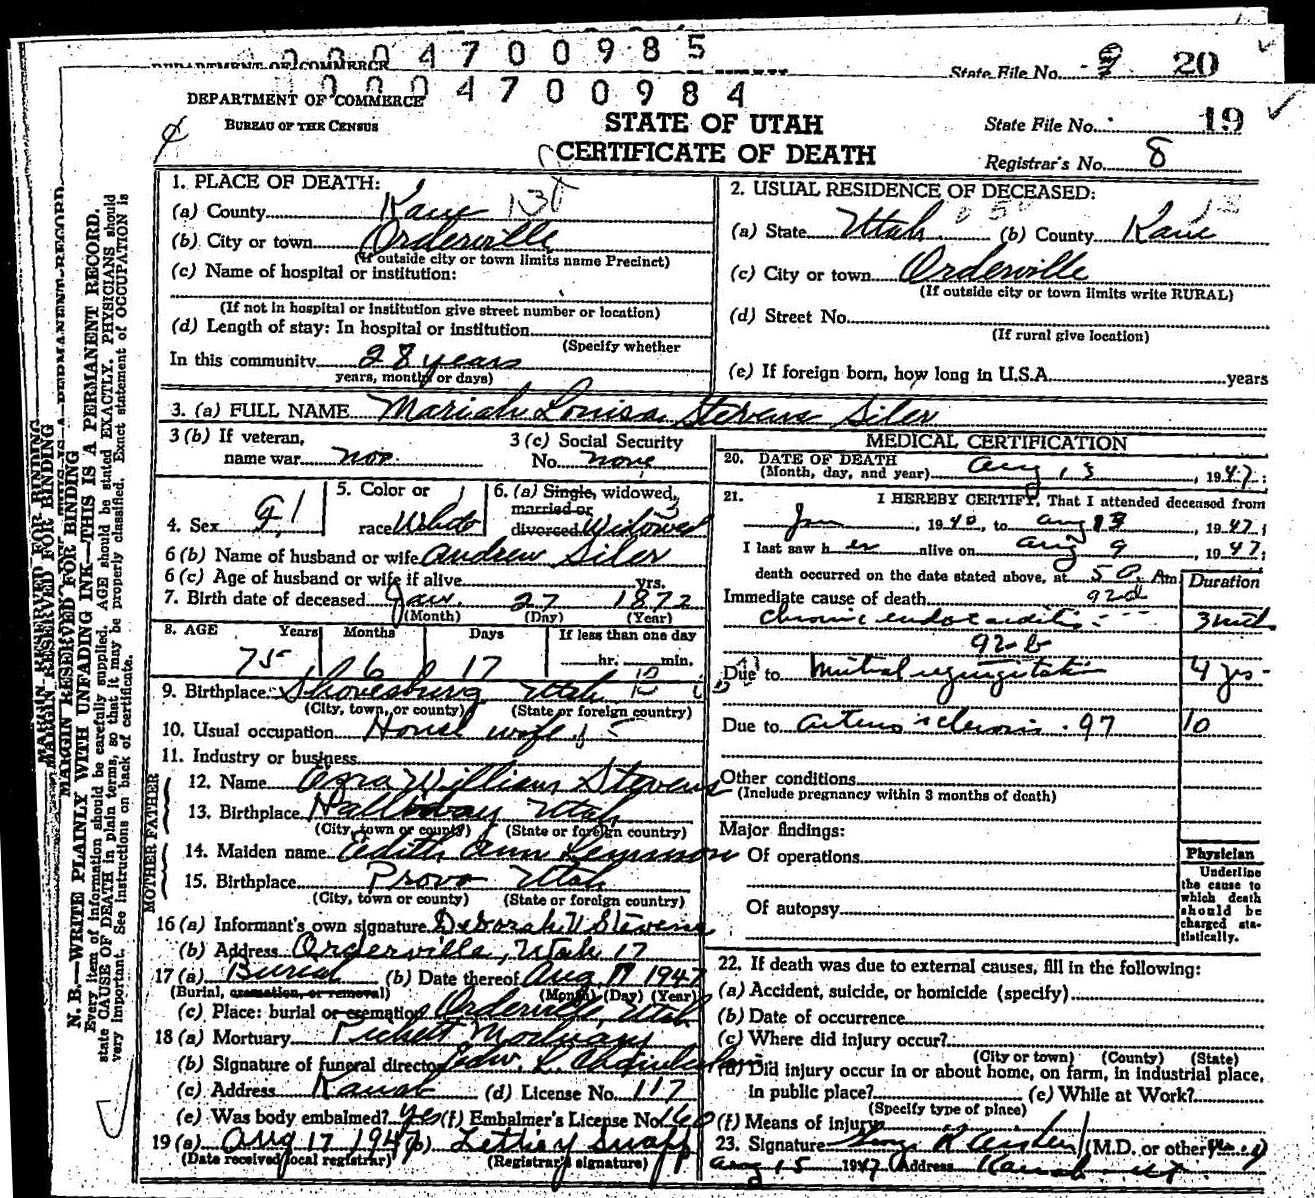 0 0 0 4 7 0 0 9 8 5
DEPARTMENT OF COMMERCE
State File No. 20
0 0 0 4 7 0 0 9 8 4
DEPARTMENT OF COMMERCE
BUREAU OF THE CENSUS
STATE OF UTAH
CERTIFICATE OF DEATH
State File No. 19
Registrar's No. 8
MARGIN RESERVED FOR BINDING
MARGIN RESERVED FOR BINDING
N. B.—WRITE PLAINLY WITH UNFADING INK—THIS IS A PERMANENT RECORD.
Every item of information should be carefully supplied. AGE should be stated EXACTLY. PHYSICIANS should
state CAUSE OF DEATH in plain terms, so that it may be properly classified. Exact statement of OCCUPATION is
very important. See instructions on back of certificate.
1. PLACE OF DEATH:
(a) County Kane
(b) City or town Orderville
(If outside city or town limits name Precinct)
(c) Name of hospital or institution:
(If not in hospital or institution give street number or location)
(d) Length of stay: In hospital or institution
(Specify whether
In this community 28 years
years, months or days)
2. USUAL RESIDENCE OF DECEASED:
(a) State Utah (b) County Kane
(c) City or town Orderville
(If outside city or town limits write RURAL)
(d) Street No.
(If rural give location)
(e) If foreign born, how long in U.S.A. years
3. (a) FULL NAME Mariah Louisa Stevens Siler
3 (b) If veteran, name war non
3 (c) Social Security No. none
4. Sex
5. Color or race White
6. (a) Single, widowed, married or divorced Widowed
6 (b) Name of husband or wife Andrew Siler
6 (c) Age of husband or wife if alive yrs.
7. Birth date of deceased Jan. 27 1872
(Month) (Day) (Year)
8. AGE Years Months Days If less than one day
75 6 17 hr. min.
9. Birthplace Shonesburg Utah
(City, town, or county) (State or foreign country)
10. Usual occupation House wife
11. Industry or business
FATHER
12. Name Ezra William Stevens
13. Birthplace Utah
(City, town or county) (State or foreign country)
MOTHER
14. Maiden name Edith Ann
15. Birthplace Provo Utah
(City, town or county) (State or foreign country)
16 (a) Informant's own signature Deborah V Stevens
(b) Address Orderville, Utah 17
17 (a) Burial (b) Date thereof Aug 17 1947
(Burial, cremation, or removal) (Month) (Day) (Year)
(c) Place: burial or cremation Orderville, Utah
18 (a) Mortuary Mortuary
(b) Signature of funeral director
(c) Address Kanab (d) License No. 117
(e) Was body embalmed? yes (f) Embalmer's License No. 160
19 (a) Aug 17 1947 (b) Lethey Swapp
(Date received local registrar) (Registrar's signature)
MEDICAL CERTIFICATION
20. DATE OF DEATH
(Month, day, and year) Aug 13, 1947;
21. I HEREBY CERTIFY, That I attended deceased from
Jan, 1940, to Aug 13, 1947;
I last saw her alive on Aug 9, 1947;
death occurred on the date stated above, at 50 Am
Duration
Immediate cause of death 92d
chronic endocarditis 3 mth
92-b
Due to mitral regurgitation 4 yrs
Due to arterio sclerosis 97 10
Other conditions
(Include pregnancy within 3 months of death)
Major findings:
Of operations
Of autopsy
Physician
Underline
the cause to
which death
should be
charged sta-
tistically.
22. If death was due to external causes, fill in the following:
(a) Accident, suicide, or homicide (specify)
(b) Date of occurrence
(c) Where did injury occur?
(City or town) (County) (State)
(d) Did injury occur in or about home, on farm, in industrial place,
in public place? (e) While at Work?
(Specify type of place)
(f) Means of injury
23. Signature (M.D. or other)
Aug 15 1947 Address Kanab Ut